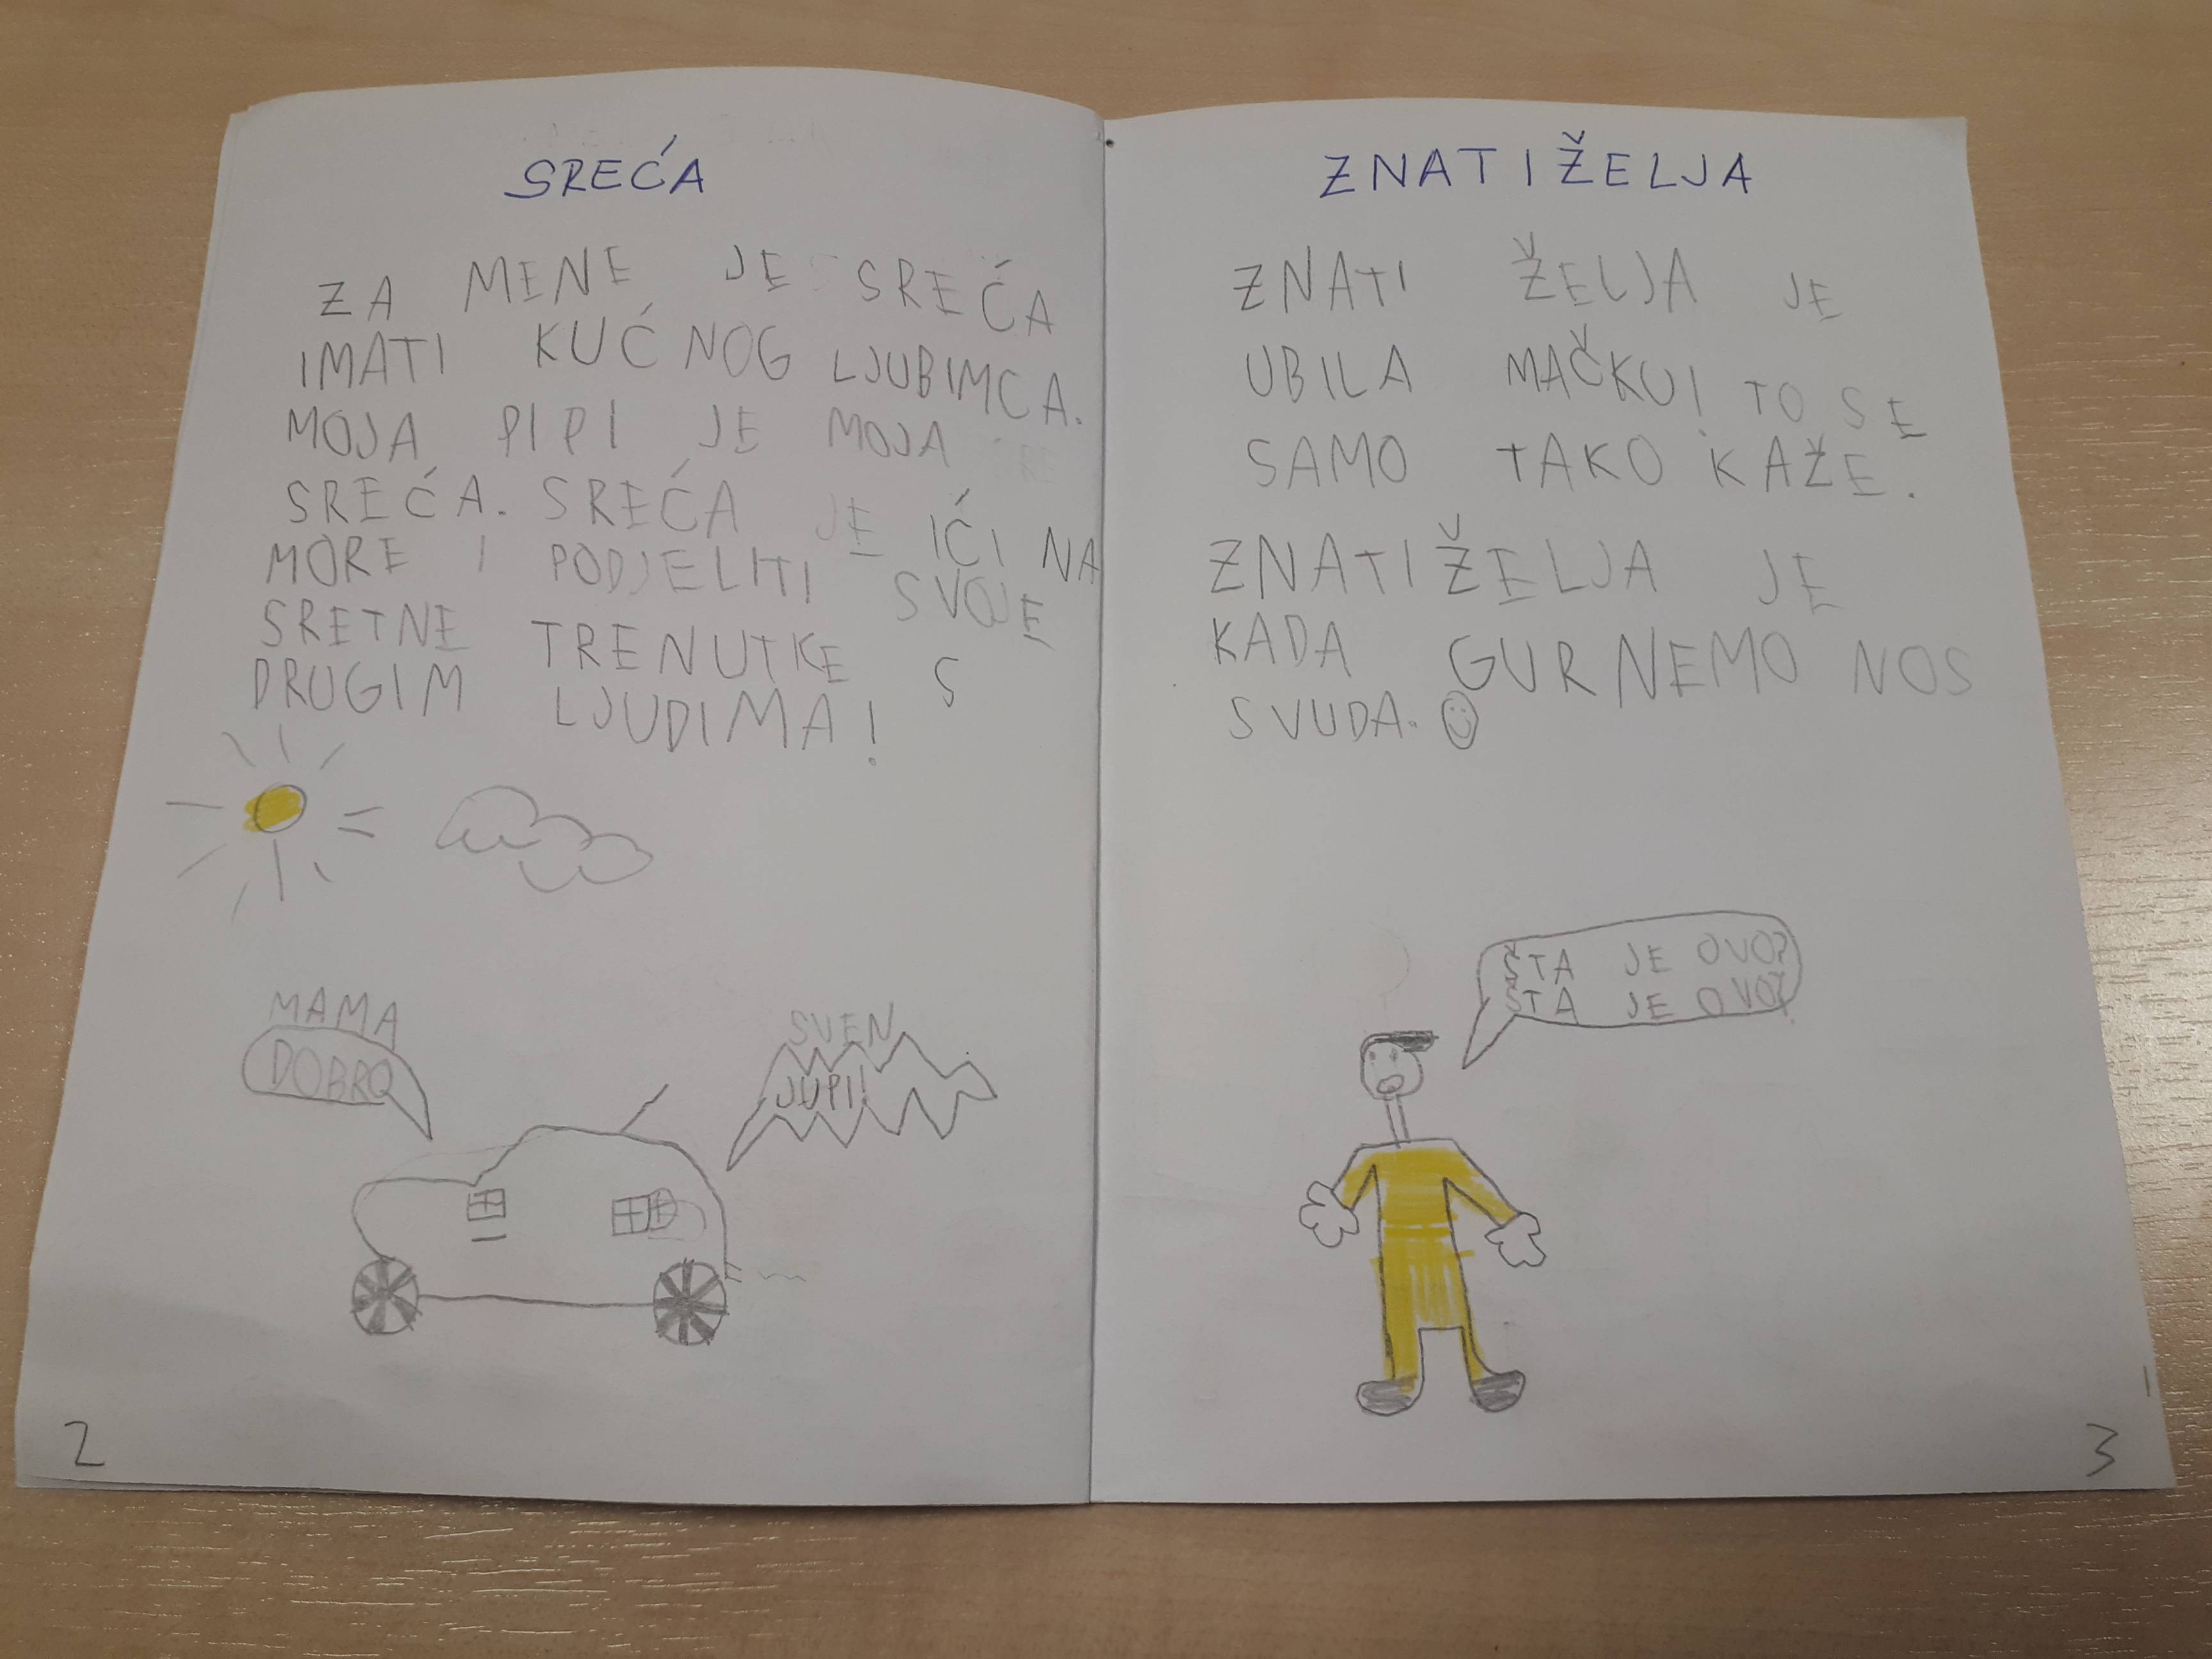 SREĆA
ZA MENE JE SREĆA
IMATI KUĆNOG LJUBIMCA.
MOJA PIPI JE MOJA
SREĆA. SREĆA JE IĆI NA
MORE I PODJELITI SVOJE
SRETNE TRENUTKE S
DRUGIM LJUDIMA!
MAMA
DOBRO
SVEN
JUPI!
2
ZNATIŽELJA
ZNATI ŽELJA JE
UBILA MAČKU! TO SE
SAMO TAKO KAŽE.
ZNATIŽELJA JE
KADA GURNEMO NOS
SVUDA.
ŠTA JE OVO?
ŠTA JE OVO?
3